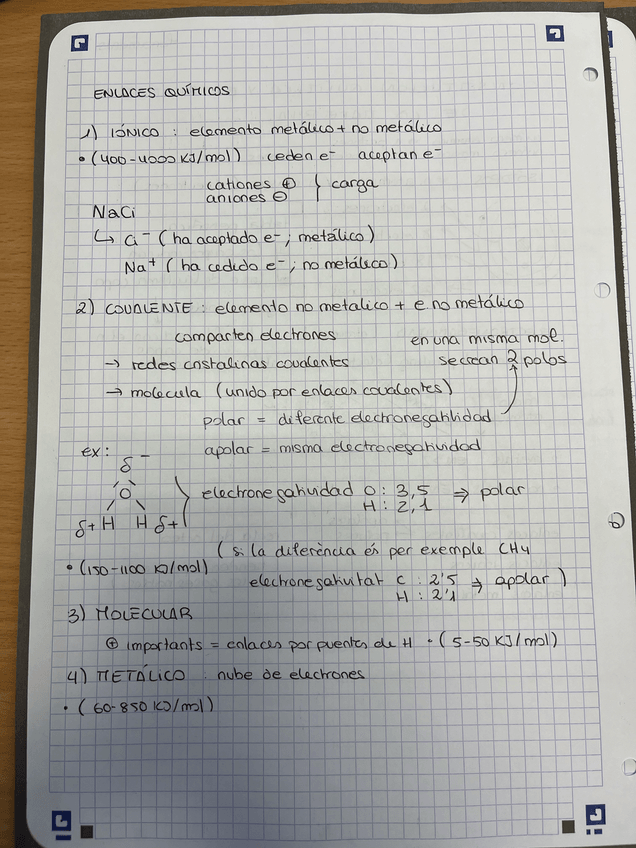 ENLACES QUÍMICOS
1) IÓNICO : elemento metálico + no metálico
• (400-4000 KJ/mol) ceden e⁻ aceptan e⁻
cationes ⊕ } carga
aniones ⊖
NaCi
↳ Ci⁻ (ha aceptado e⁻; metálico)
Na⁺ (ha cedido e⁻; no metálico)
2) COVALENTE : elemento no metalico + e no metálico
comparten electrones
en una misma mol.
→ redes cristalinas covalentes
se crean 2 polos
→ molecula (unido por enlaces covalentes)
polar = diferente electronegatividad
apolar = misma electronegatividad
ex:
δ⁻
O
δ+ H H δ+
electronegatividad O : 3,5 ⇒ polar
H : 2,1
(si la diferència és per exemple CH4
• (150-1100 KJ/mol)
electronegativitat C : 2'5 ⇒ apolar)
H : 2'1
3) MOLECULAR
⊕ importants = enlaces por puentes de H • (5-50 KJ/mol)
4) METÁLICO : nube de electrones
• (60-850 KJ/mol)